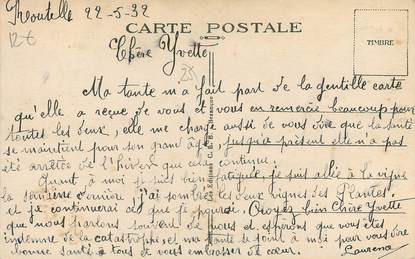 Routelle 22-5-32
CARTE POSTALE
12€
Chère Yvette
25
TIMBRE
Ma tante m'a fait part de la gentille carte
qu'elle a reçue de vous et vous en remercie beaucoup pour
toutes les deux, elle me charge aussi de vous dire que la santé
se maintient pour son grand âge jusqu'à présent elle n'a pas
été arrêtée de l'hiver que cela continue.
Quant à moi je suis bien fatiguée, je suis allée à la vigne
la semaine dernière j'ai sombré les deux vignes des Plantes.
et je continuerai dès que je pourrai. Croyez bien Chère Yvette
que nous parlons souvent de nous et espérons que vous êtes
indemne de la catastrophe, et ma tante se joint à moi pour vous dire
bonne santé à tous et vous embrasser de cœur. Laurence